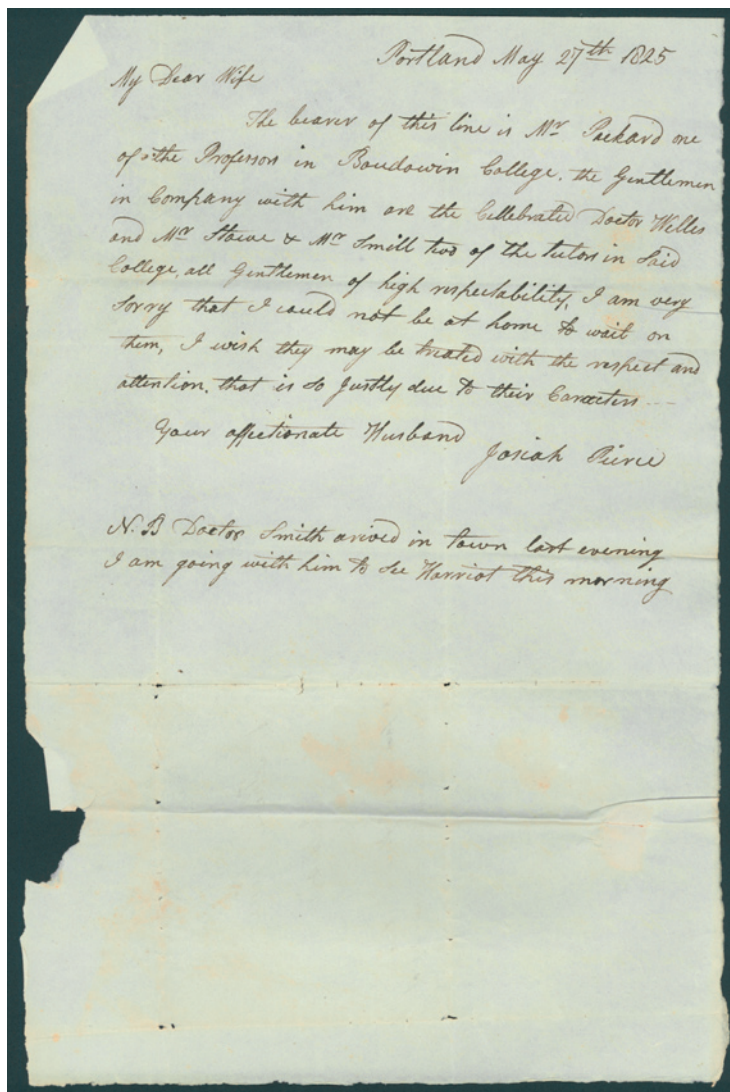 Portland May 27th 1825
My Dear Wife
The bearer of this line is Mr Packard one
of the Professors in Boudowin College. the Gentlemen
in Company with him are the Cellebrated Doctor Welles
and Mr Stowe & Mr Smill two of the tutors in Said
College, all Gentlemen of high respectability, I am very
Sorry that I could not be at home to wait on
them, I wish they may be treated with the respect and
attention, that is so justly due to their Caracters
Your affectionate Husband
Josiah Pierce
N.B Doctor Smith arived in town last evening
I am going with him to see Harriot this morning